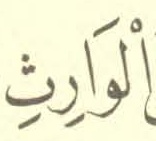 الْوَارِثِ